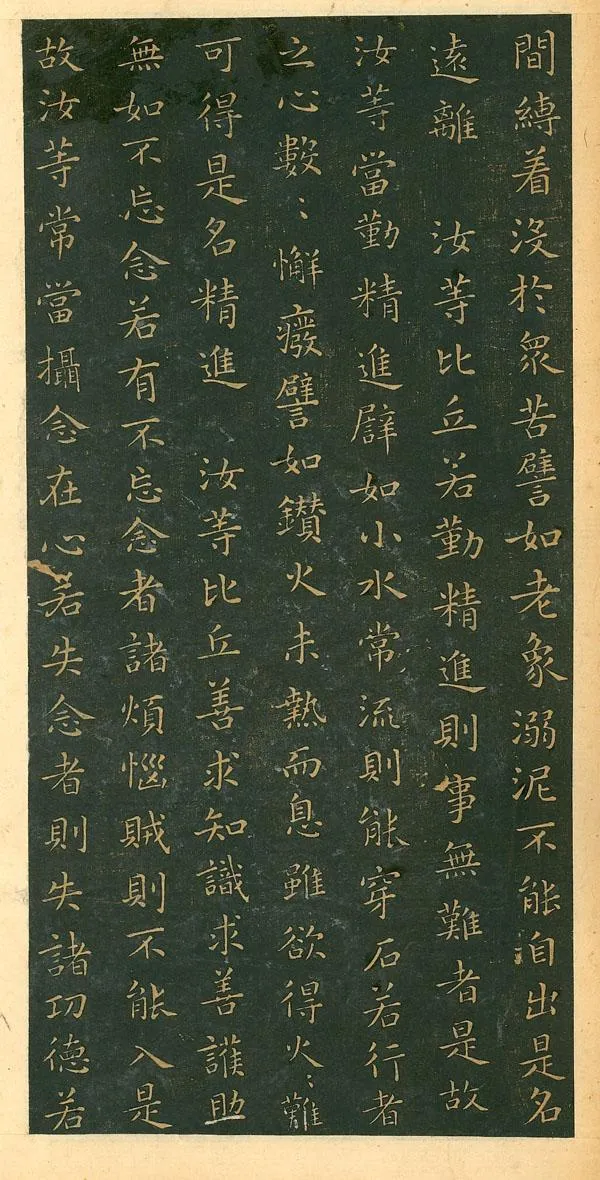 間縛着没於衆苦譬如老象溺泥不能自出是名
遠離　汝等比丘若勤精進則事無難者是故
汝等當勤精進辟如小水常流則能穿石若行者
之心數〻懈癈譬如鑚火未熱而息雖欲得火〻難
可得是名精進　汝等比丘善求知識求善護助
無如不忘念若有不忘念者諸煩惱賊則不能入是
故汝等常當攝念在心若失念者則失諸功德若